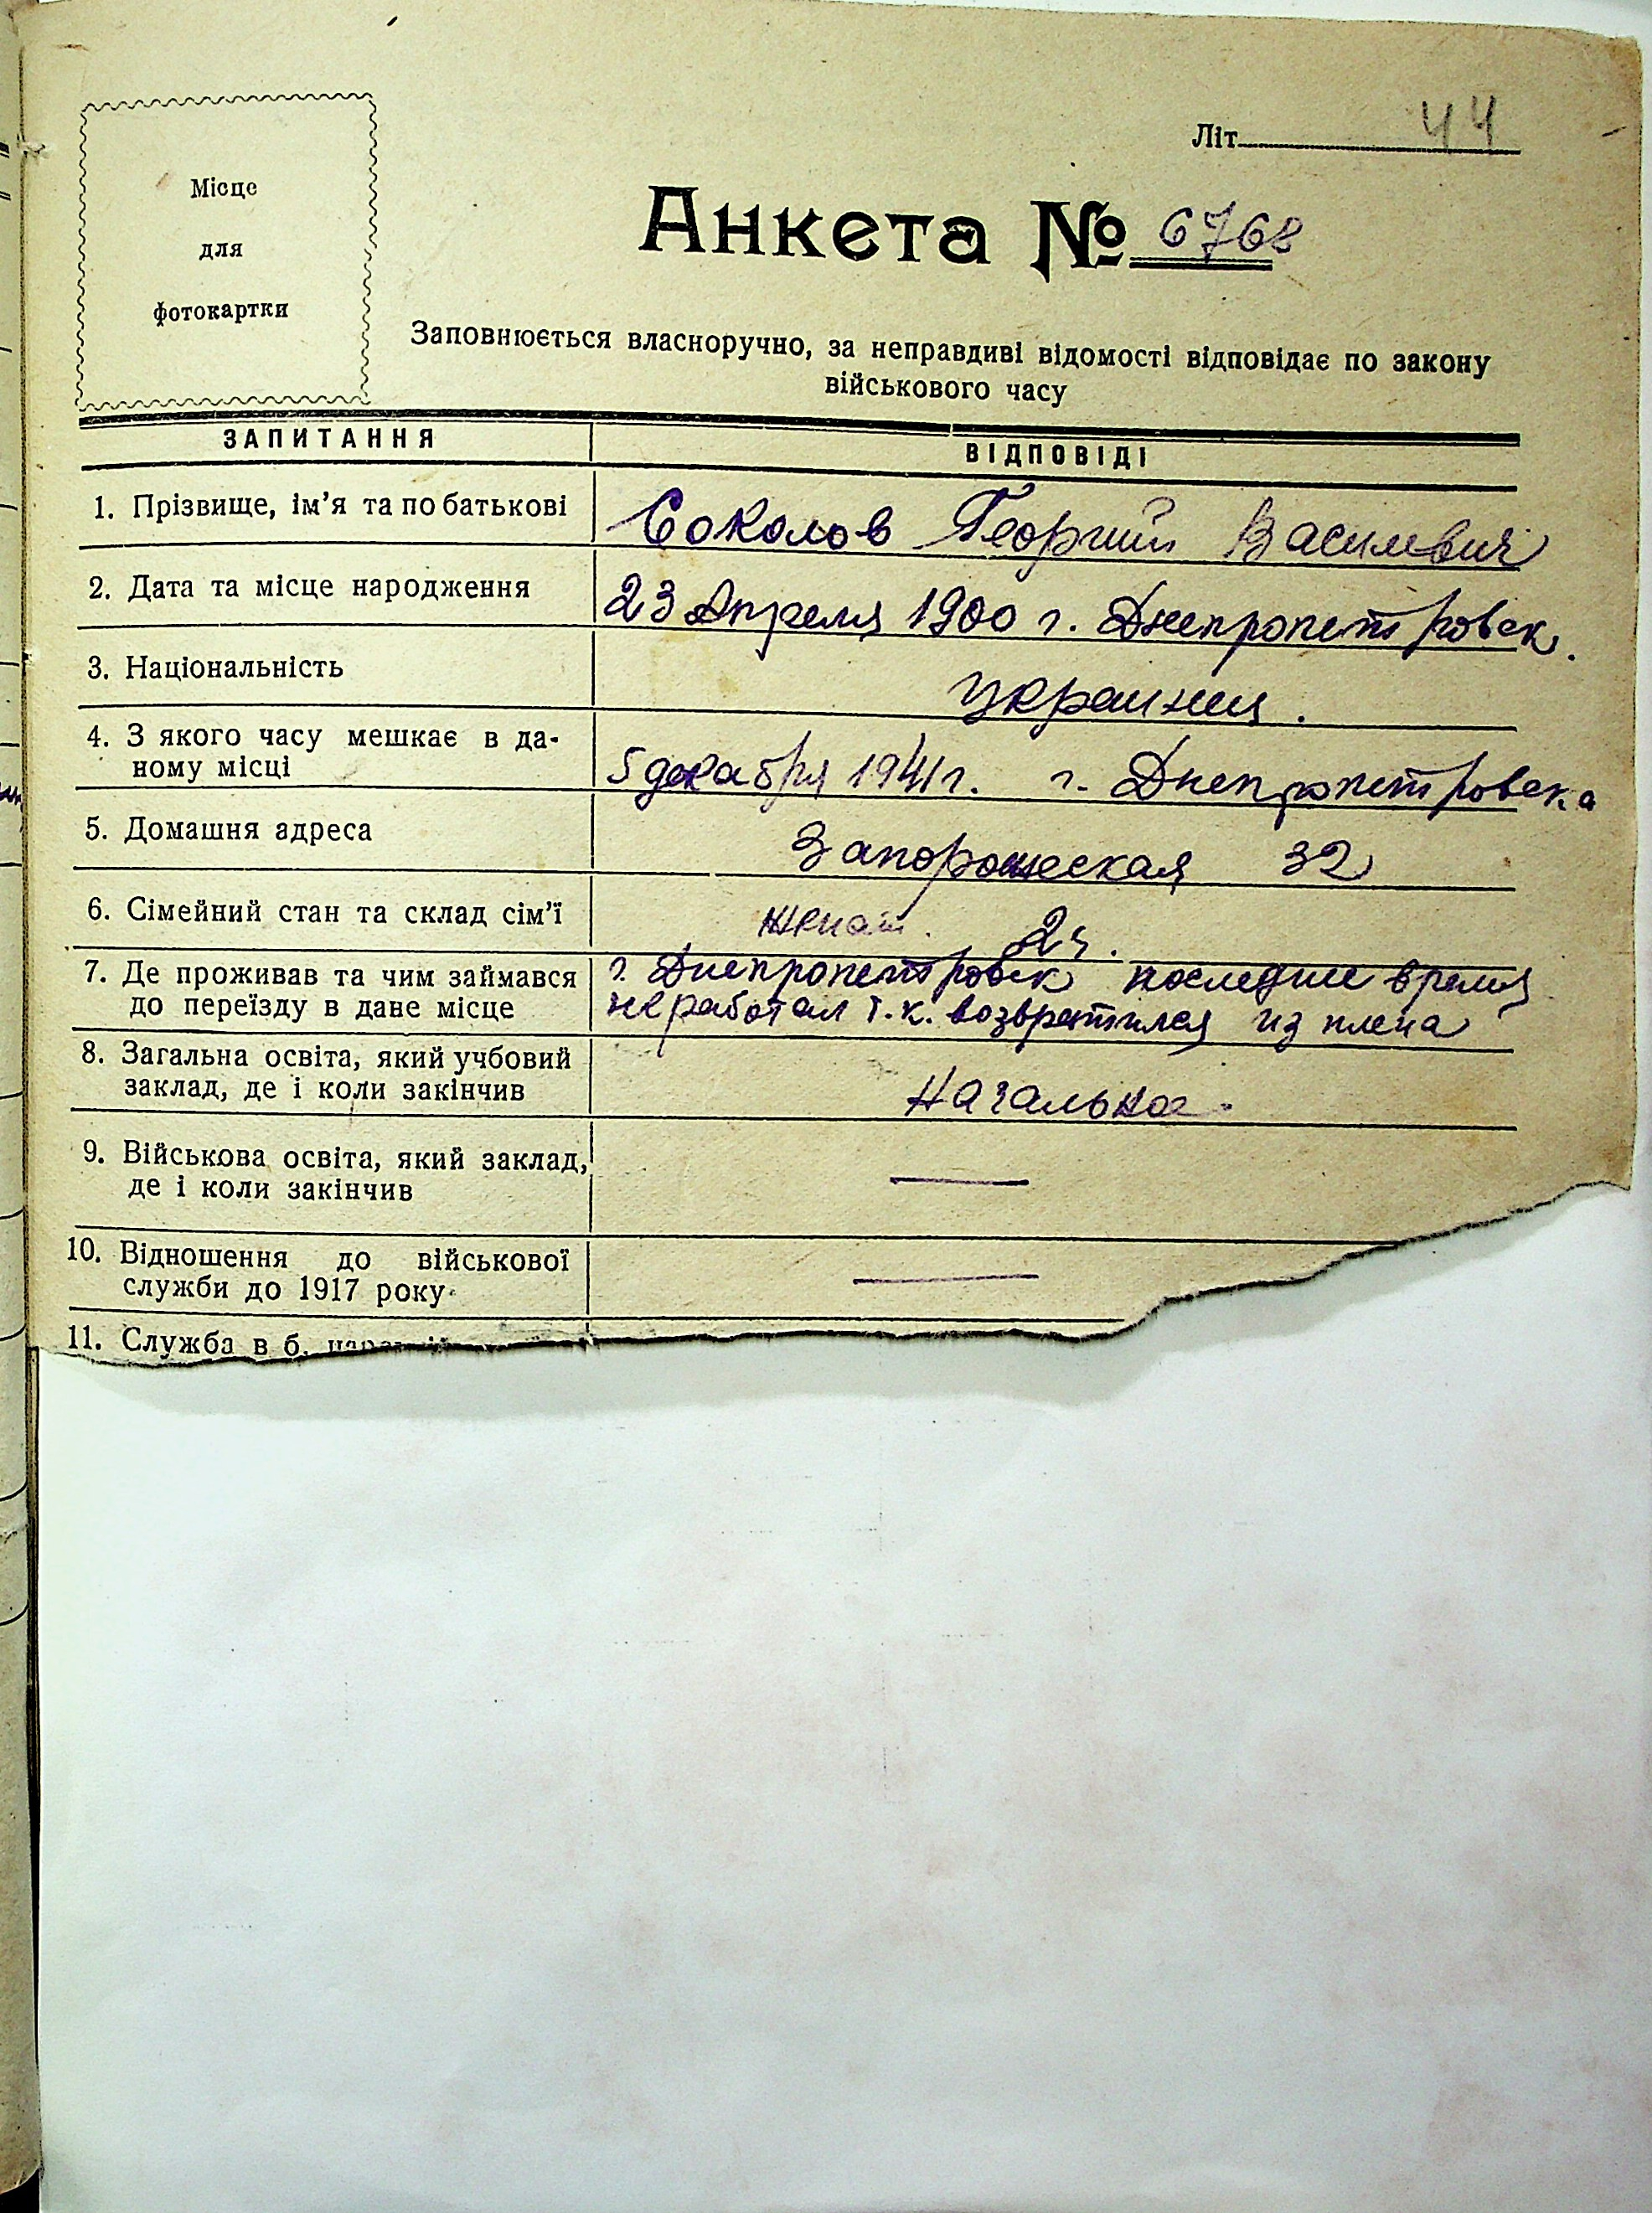 Літ. 44
Місце
для
фотокартки
Анкета № 6768
Заповнюється власноручно, за неправдиві відомості відповідає по закону
військового часу
ЗАПИТАННЯ ВІДПОВІДІ
1. Прізвище, ім'я та по батькові Соколов Георгий Василевич
2. Дата та місце народження 23 Апреля 1900 г. Днепропетровск.
3. Національність украинец.
4. З якого часу мешкає в да-
ному місці 5 декабря 1941 г. г. Днепропетровска
5. Домашня адреса Запорожеская 32
6. Сімейний стан та склад сім'ї женат. 2ч.
7. Де проживав та чим займався г. Днепропетровск последние время
до переїзду в дане місце не работал т.к. возвратился из плена
8. Загальна освіта, який учбовий
заклад, де і коли закінчив Начальное.
9. Військова освіта, який заклад, —
де і коли закінчив
10. Відношення до військової —
служби до 1917 року
11. Служба в б.